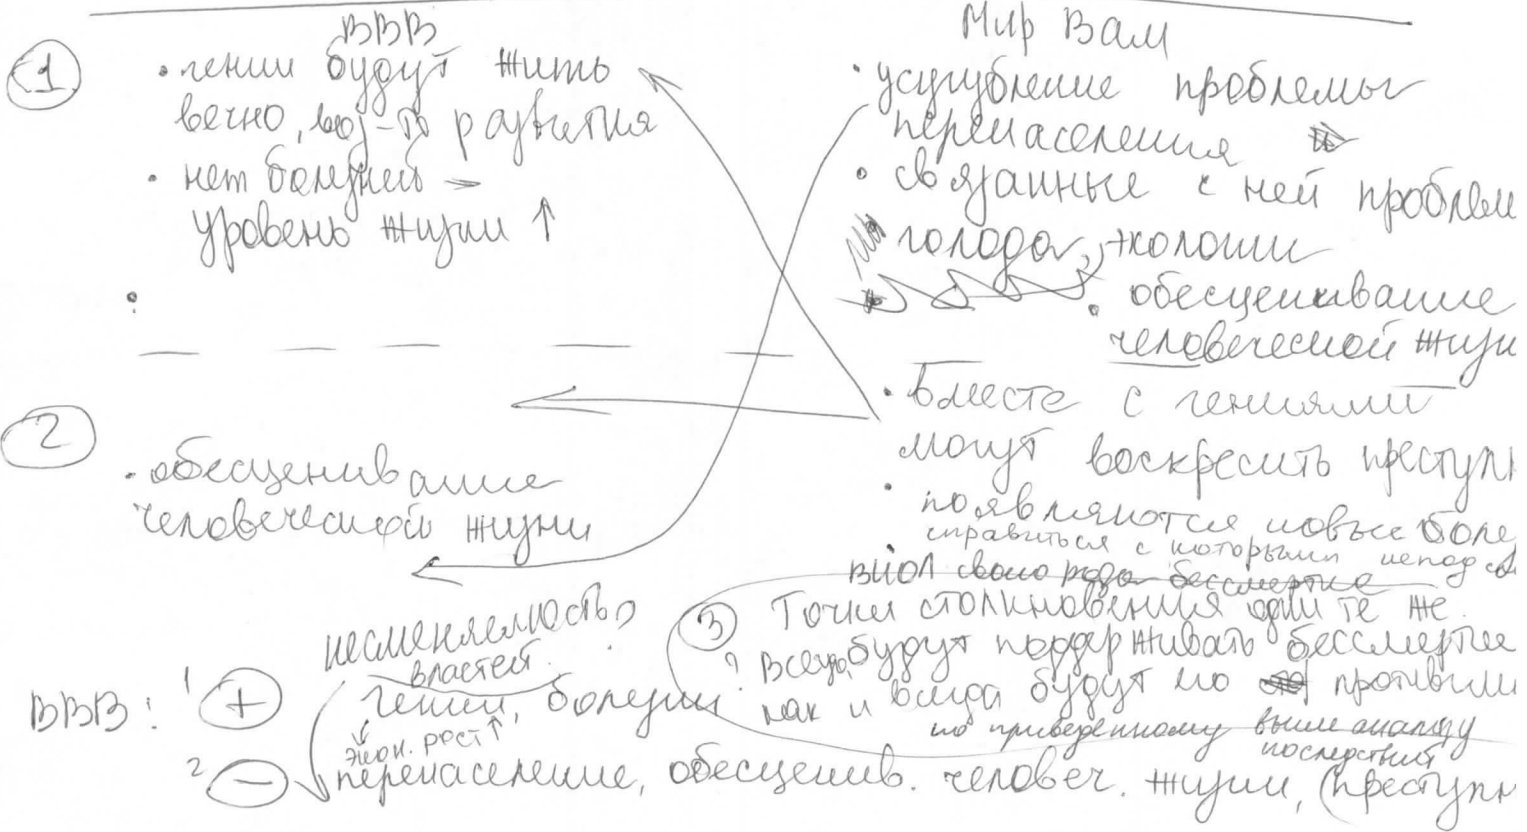 ВВВ
1
• гении будут жить
вечно, развития
• нет болезней →
уровень жизни ↑
•
2
• обесценивание
человеческой жизни
Мир Вам
• усугубление проблемы
перенаселения
• связанные с ней пробле
голода, экологии
• обесценивание
человеческой жиз
• вместе с гениями
могут воскресить преступн
• появляются новые боле
справиться с которыми
• своего рода бессмертие
3 Точки столкновения одни те же.
? Всегда будут поддерживать бессмертие
как и всегда будут его противни
по приведенному выше анализу
последствий
несменяемость
властей
ВВВ: 1 + гении, болезни
экон. рост ↑
2 − перенаселение, обесценив. человеч. жизни, (преступн